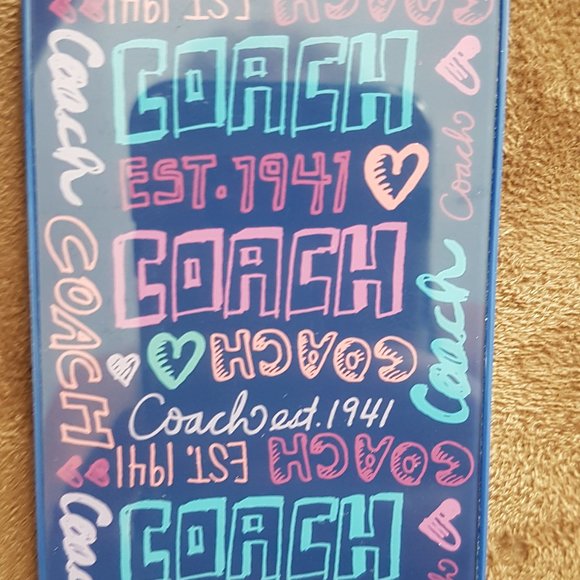 COACH
EST. 1941
Coach
COACH
Coach
EST. 1941
COACH
COACH
Coach
COACH
COACH
Coach est. 1941
COACH
EST. 1941
Coach
COACH